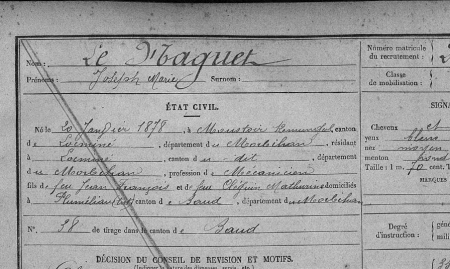 Nom : Le Naguet
Prénoms : Joseph Marie Surnom :
Numéro matricule
du recrutement :
Classe
de mobilisation :
ÉTAT CIVIL.
Né le 20 Janvier 1878, à Moustoir Remungol canton
de Locminé, département du Morbihan, résidant
à Locminé, canton du dit, département
du Morbihan, profession de Mécanicien
fils de feu Jean François et de feu Mathurine domiciliés
à Pluméliau, canton de Baud, département du Morbihan
N° 38 de tirage dans le canton de Baud
SIGNA
Cheveux et
yeux bleus
nez moyen
menton rond
Taille : 1 m. 70 cent.
MARQUES
Degré
d'instruction :
géné
mili
DÉCISION DU CONSEIL DE REVISION ET MOTIFS.